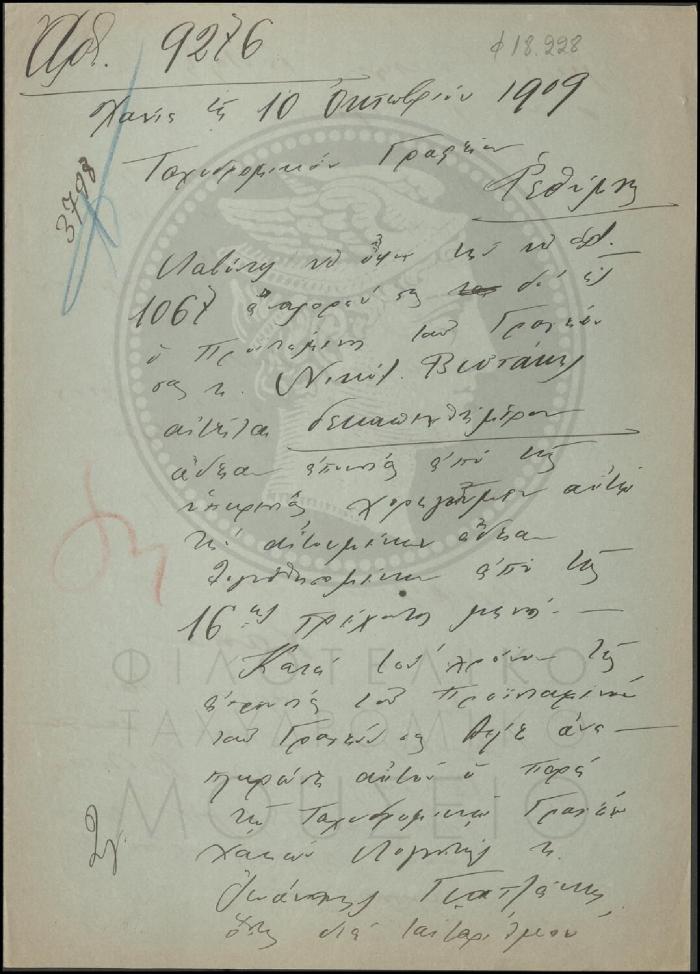 Αρ. 9276
φ 18.228
Χανιά τη 10 Οκτωβρίου 1909
3798
Ταχυδρομικόν Γραφείον
Ρεθύμνης
Λαβόντες υπ' όψει την υπ' αρ.
1067 αναφοράν σας δι' ης
ο Προϊστάμενος του Γραφείου
σας κ. Νικόλ.
αιτείται δεκαπενθήμερον
άδειαν απουσίας από της
υπηρεσίας χορηγούμεν αυτώ
την αιτουμένην άδειαν
από της
16ης τρέχοντος μηνός.
Κατά τον χρόνον της
απουσίας του Προϊσταμένου
του Γραφείου σας θέλει ανα-
πληρώσει αυτόν ο παρά
τω Ταχυδρομικώ Γραφείω
Χανίων Λογιστής κ.
Ιωάννης
όστις διά
ΦΙΛΟΤΕΛΙΚΟ
ΤΑΧΥΔΡΟΜΙΚΟ
ΜΟΥΣΕΙΟ